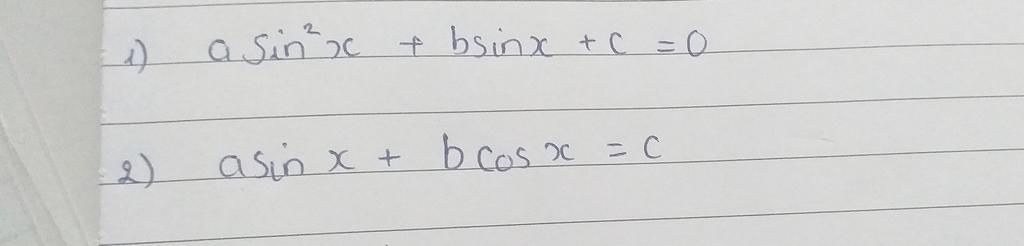 1) a sin²x + bsinx + c = 0
2) asin x + b cos x = c